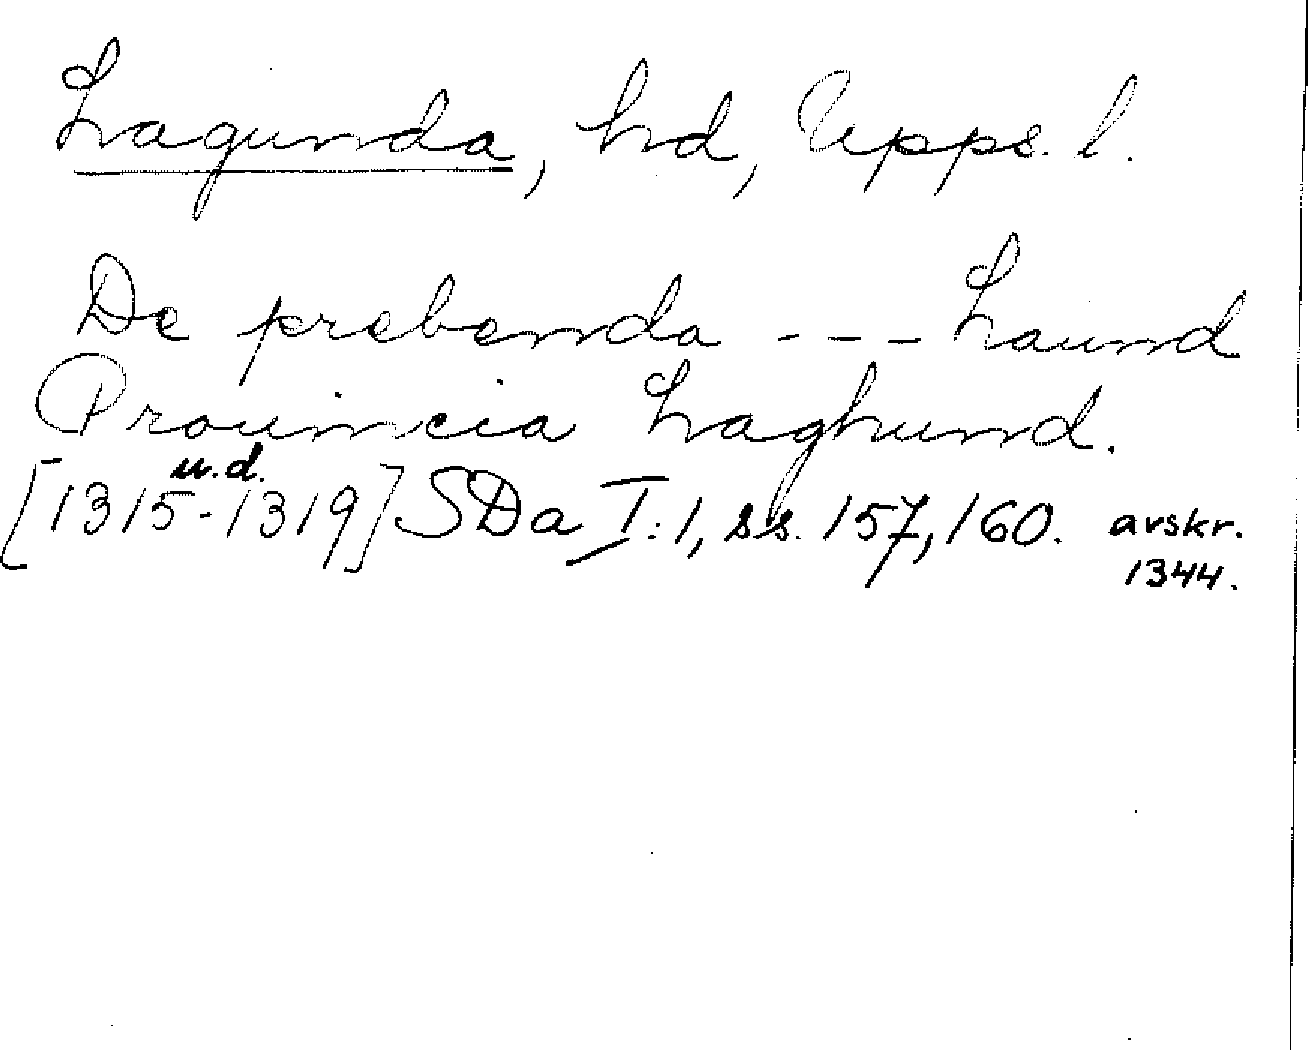 Lagunda, hd, Upps. l.
De prebenda --- Laund
Prouincia Laghund.
u.d.
[1315-1319] SDa I:1, ss. 157, 160. avskr.
1344.